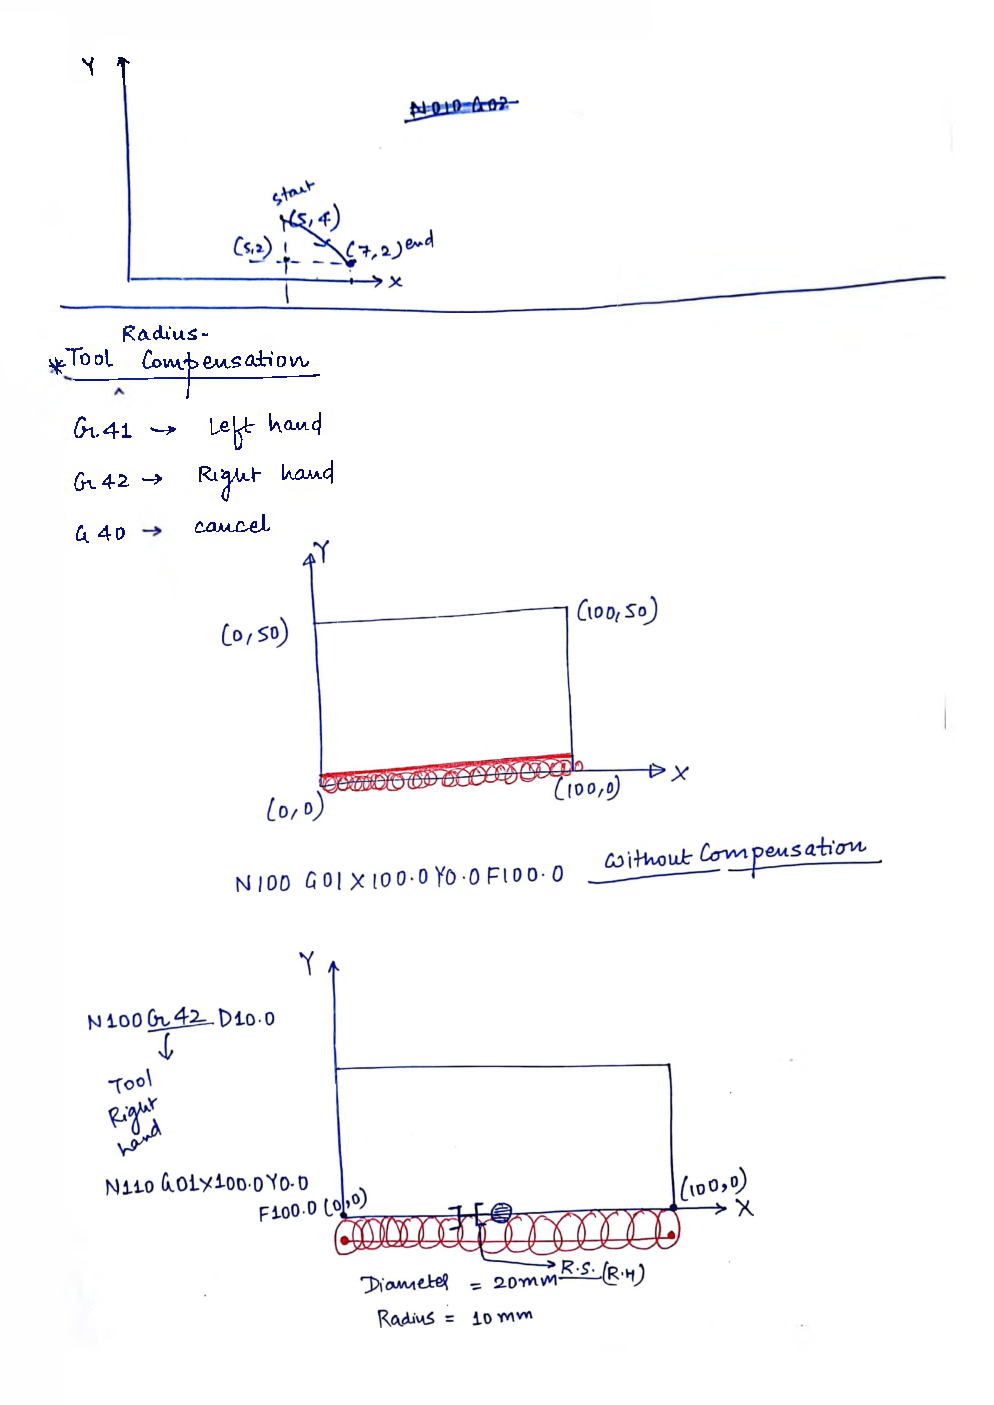 Y
N010 G02
start
(5,4)
(5,2)
(7,2) end
X
Radius-
* Tool Compensation
^
G.41 → Left hand
G 42 → Right hand
G 40 → cancel
Y
(0,50)
(100,50)
X
(0,0)
(100,0)
N100 G01 X100.0 Y0.0 F100.0 Without Compensation
Y
N100 G42 D10.0
Tool
Right
hand
N110 G01X100.0Y0.0
F100.0 (0,0)
(100,0)
X
R.S. (R.H)
Diameter = 20mm
Radius = 10mm